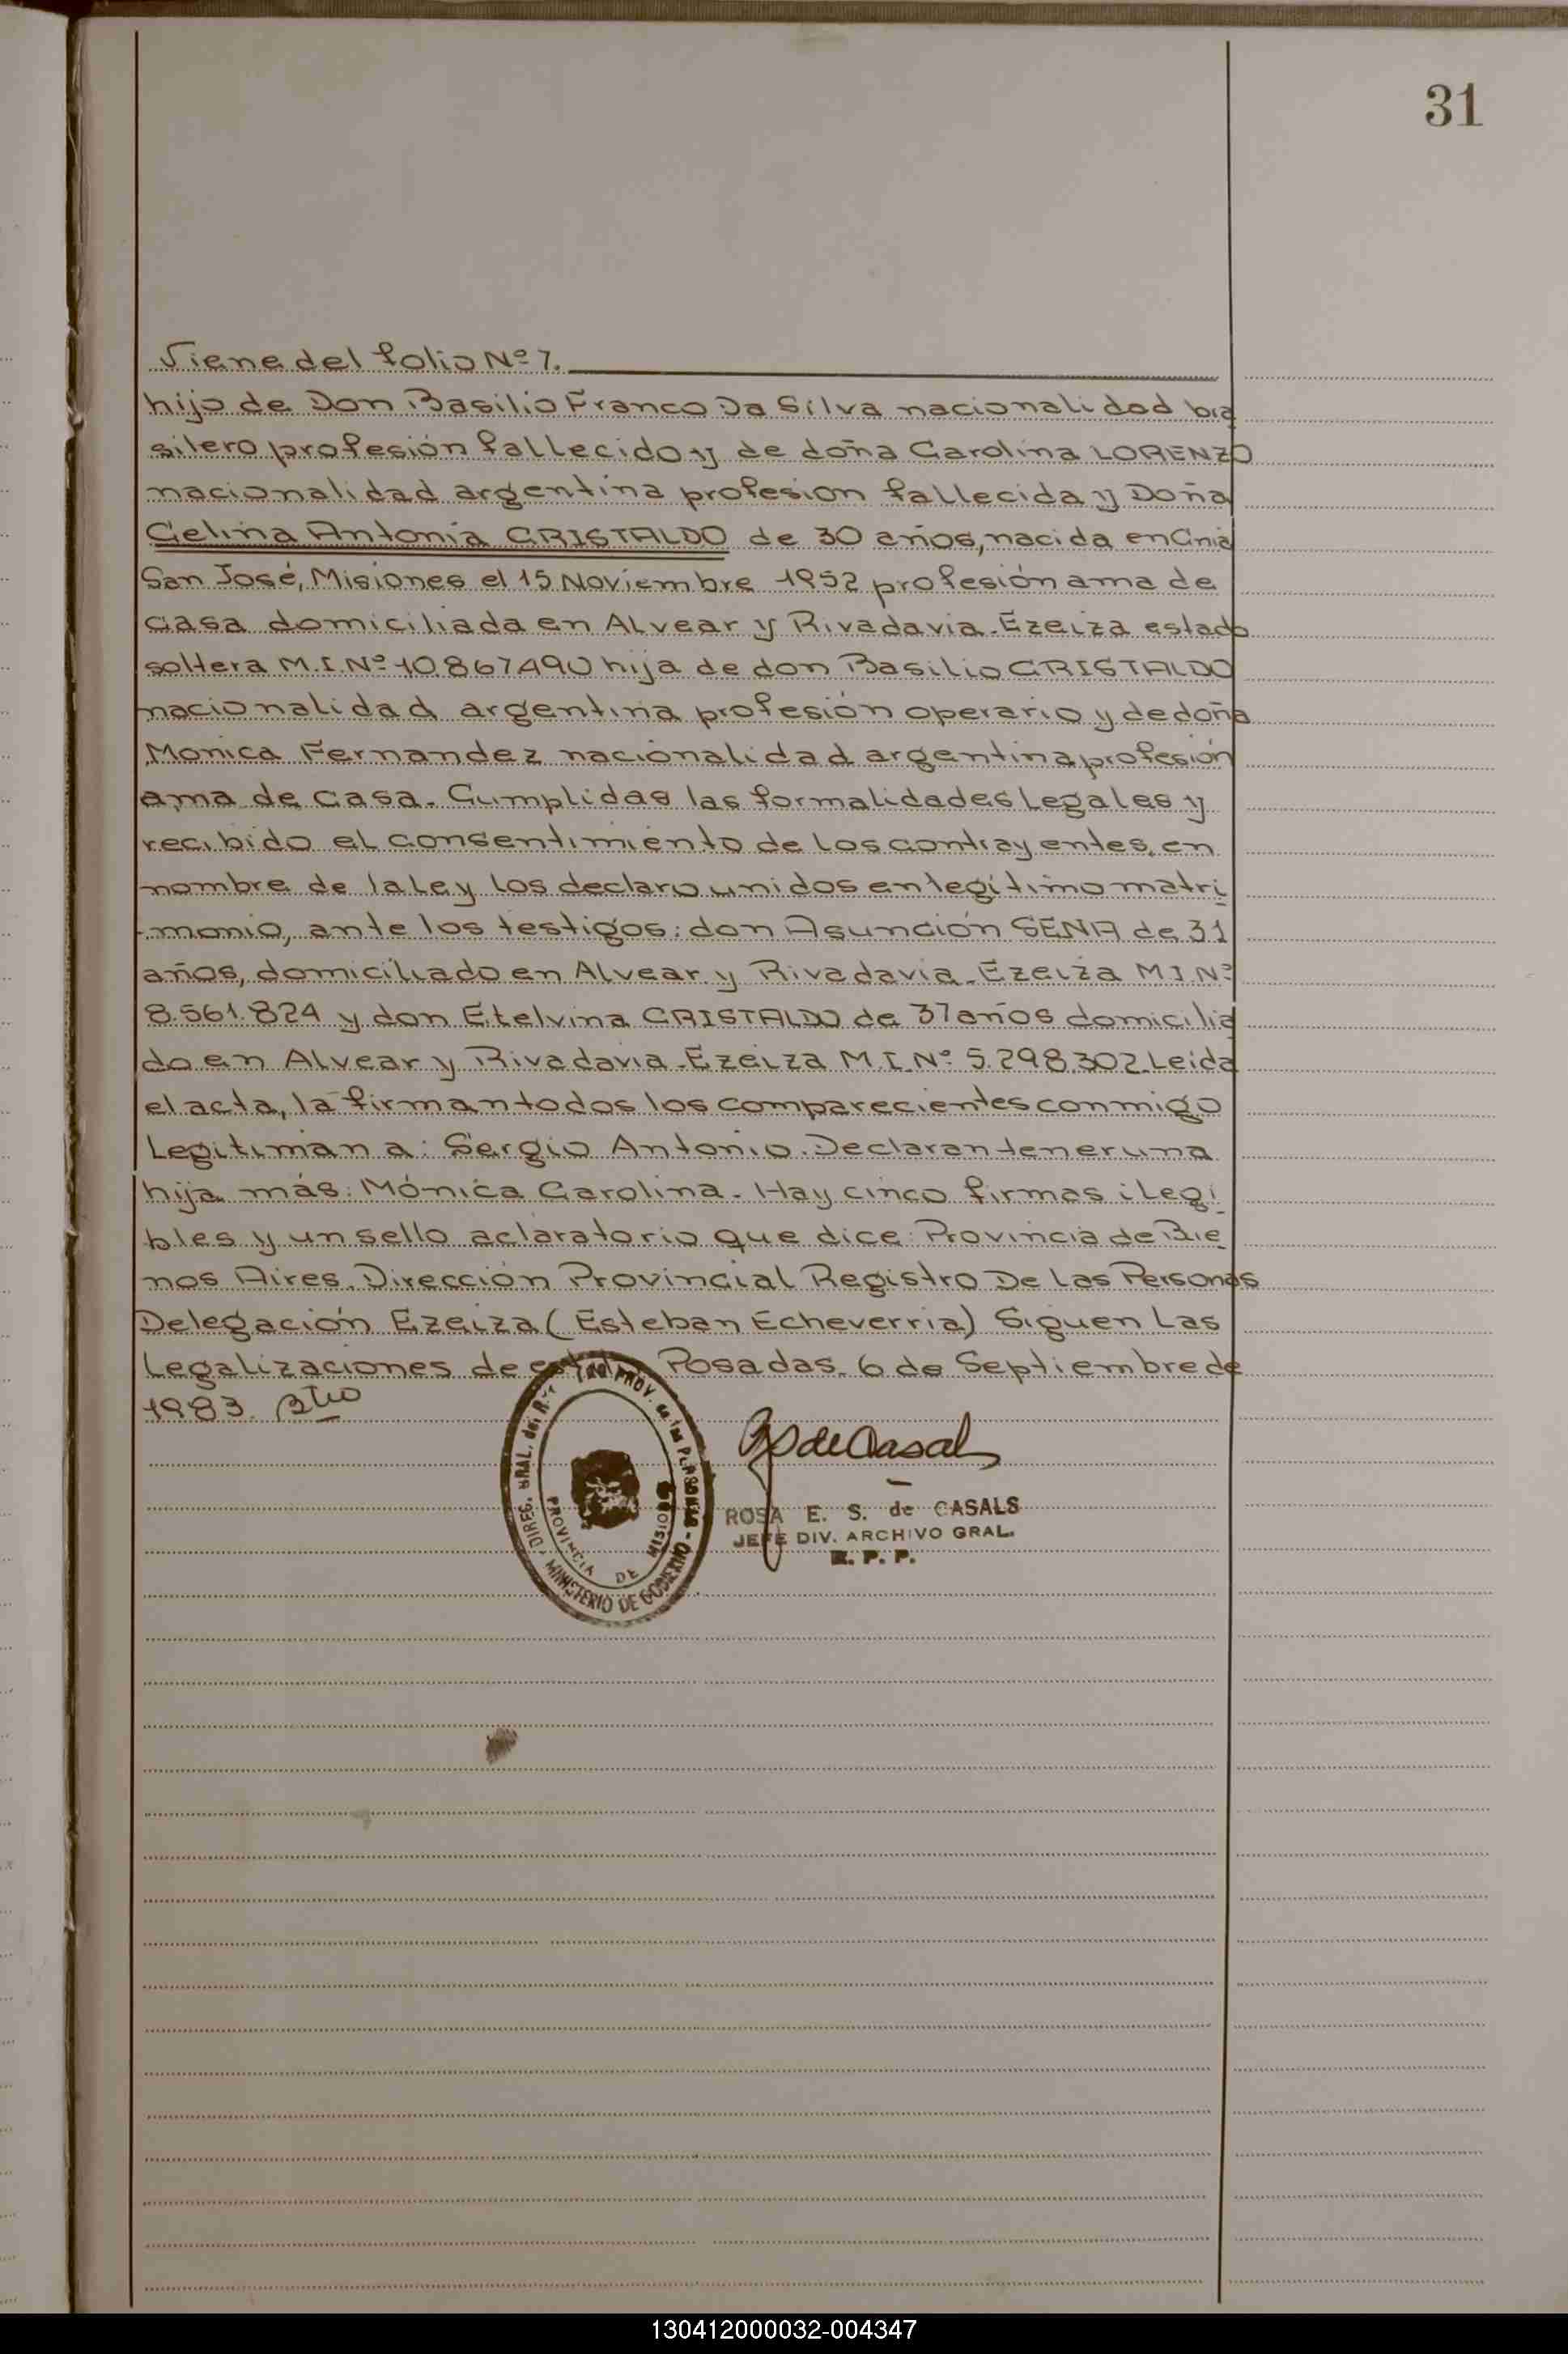 31
Viene del folio Nº 7.
hijo de Don Basilio Franco Da Silva nacionalidad bra
silero profesión fallecido y de doña Carolina LORENZO
nacionalidad argentina profesion fallecida y Doña
Celina Antonia CRISTALDO de 30 años, nacida en Cnia
San José, Misiones el 15 Noviembre 1952 profesión ama de
casa domiciliada en Alvear y Rivadavia - Ezeiza estado
soltera M.I. Nº 10.867.490 hija de don Basilio CRISTALDO
nacionalidad argentina profesión operario y de doña
Monica Fernandez nacionalidad argentina profesión
ama de casa. Cumplidas las formalidades Legales y
recibido el consentimiento de los contrayentes, en
nombre de la Ley los declaro unidos en legítimo matri
monio, ante los testigos: don Asunción SENA de 31
años, domiciliado en Alvear y Rivadavia - Ezeiza M.I. Nº
8.561.824 y don Etelvina CRISTALDO de 37 años domicilia
do en Alvear y Rivadavia - Ezeiza M.I. Nº 5.298.302. Leida
el acta, la firman todos los comparecientes conmigo
Legitiman a: Sergio Antonio. Declaran tener una
hija más: Mónica Carolina. Hay cinco firmas ilegi
bles y un sello aclaratorio que dice: Provincia de Bue
nos Aires. Dirección Provincial Registro De Las Personas
Delegación Ezeiza (Esteban Echeverria) Siguen Las
Legalizaciones de Posadas. 6 de Septiembre de
1983.
DIREC. GRAL. del PROV. de las PERSONAS
PROVINCIA DE MISIONES
MINISTERIO DE GOBIERNO
ROSA E. S. de CASALS
JEFE DIV. ARCHIVO GRAL.
R. P. P.
130412000032-004347